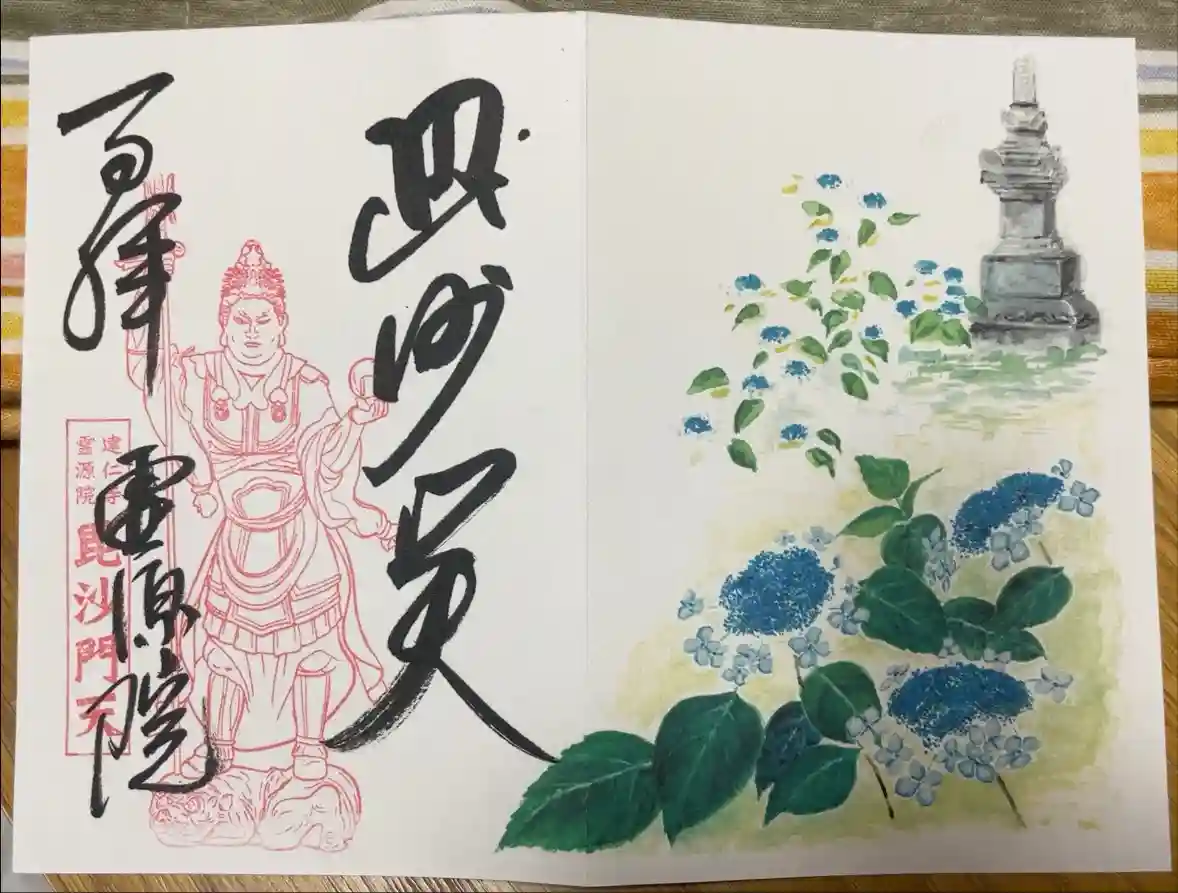 毘沙門天
百拝
霊源院
建仁寺
霊源院
毘沙門天